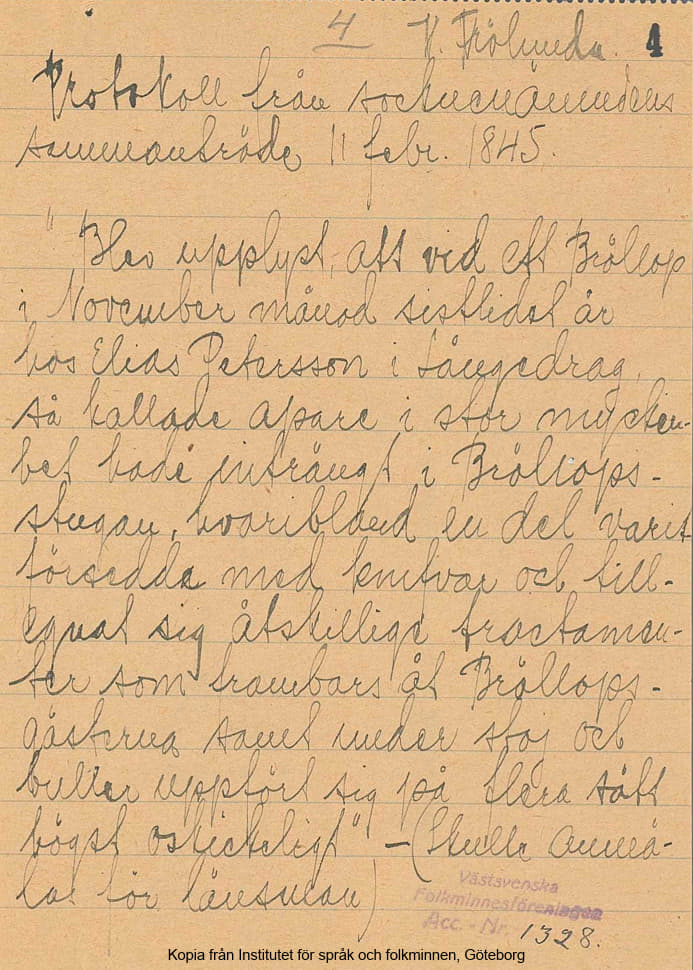 4 V. Frölunda. 4
Protokoll från sockennämndens
sammanträde 11 febr. 1845.
"Blev upplyst, att vid ett Bröllop
i November månad sistlidet år
hos Elias Petersson i Långedrag,
så kallade apare i stor mycken-
het hade inträngt i Bröllops-
stugan, hvaribland en del varit
försedda med knifvar och till-
egnat sig åtskillige tractamen-
ter som frambars åt Bröllops-
gästerna samt under stoj och
buller uppfört sig på flera sätt
högst oskickeligt" – (Skulle anmä-
las för länsman)
Västsvenska
Folkminnesföreningen
Acc. - Nr. 1328.
Kopia från Institutet för språk och folkminnen, Göteborg